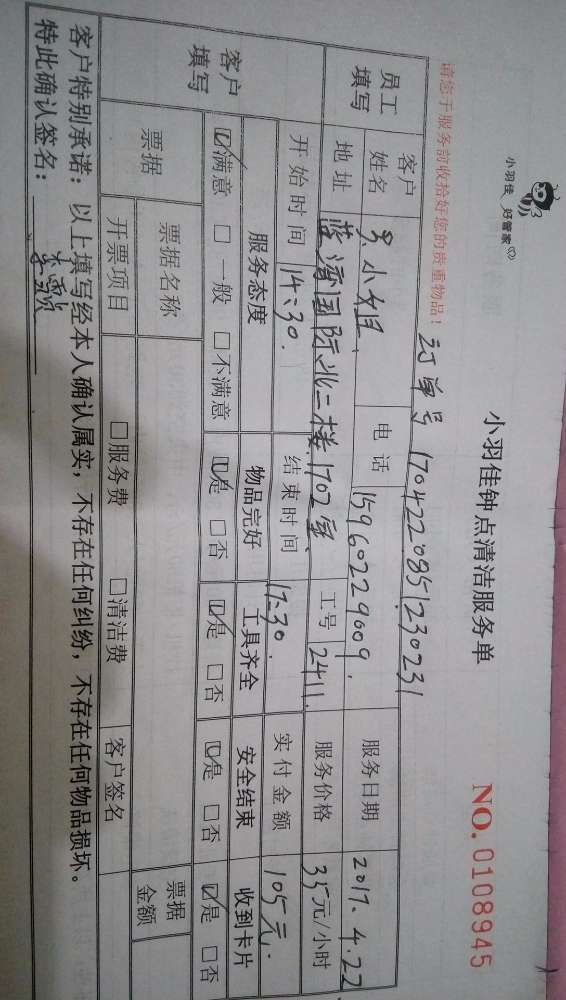 小羽佳 好管家
小羽佳钟点清洁服务单
NO. 0108945
请您于服务前收拾好您的贵重物品！ 订单号 1704220851230231
员工填写 客户姓名 小姐 电话 15960229009 服务日期 2017.4.22
地址 蓝湾国际北二楼1702室 工号 2411 服务价格 35元/小时
开始时间 14:30 结束时间 17:30 实付金额 105元
客户填写 服务态度 物品完好 工具齐全 安全结束 收到卡片
☑满意 □一般 □不满意 ☑是 □否 ☑是 □否 ☑是 □否 ☑是 □否
票据 票据名称 票据金额
开票项目 □服务费 □清洁费 客户签名
客户特别承诺：以上填写经本人确认属实，不存在任何纠纷，不存在任何物品损坏。
特此确认签名：